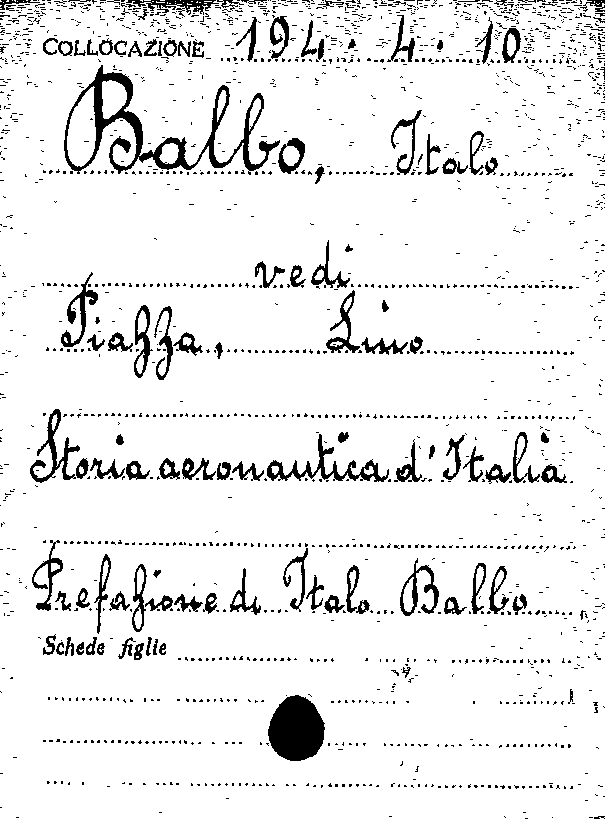 COLLOCAZIONE 194 · 4 · 10
Balbo, Italo
vedi
Piazza, Lino
Storia aeronautica d'Italia
Prefazione di Italo Balbo
Schede figlie